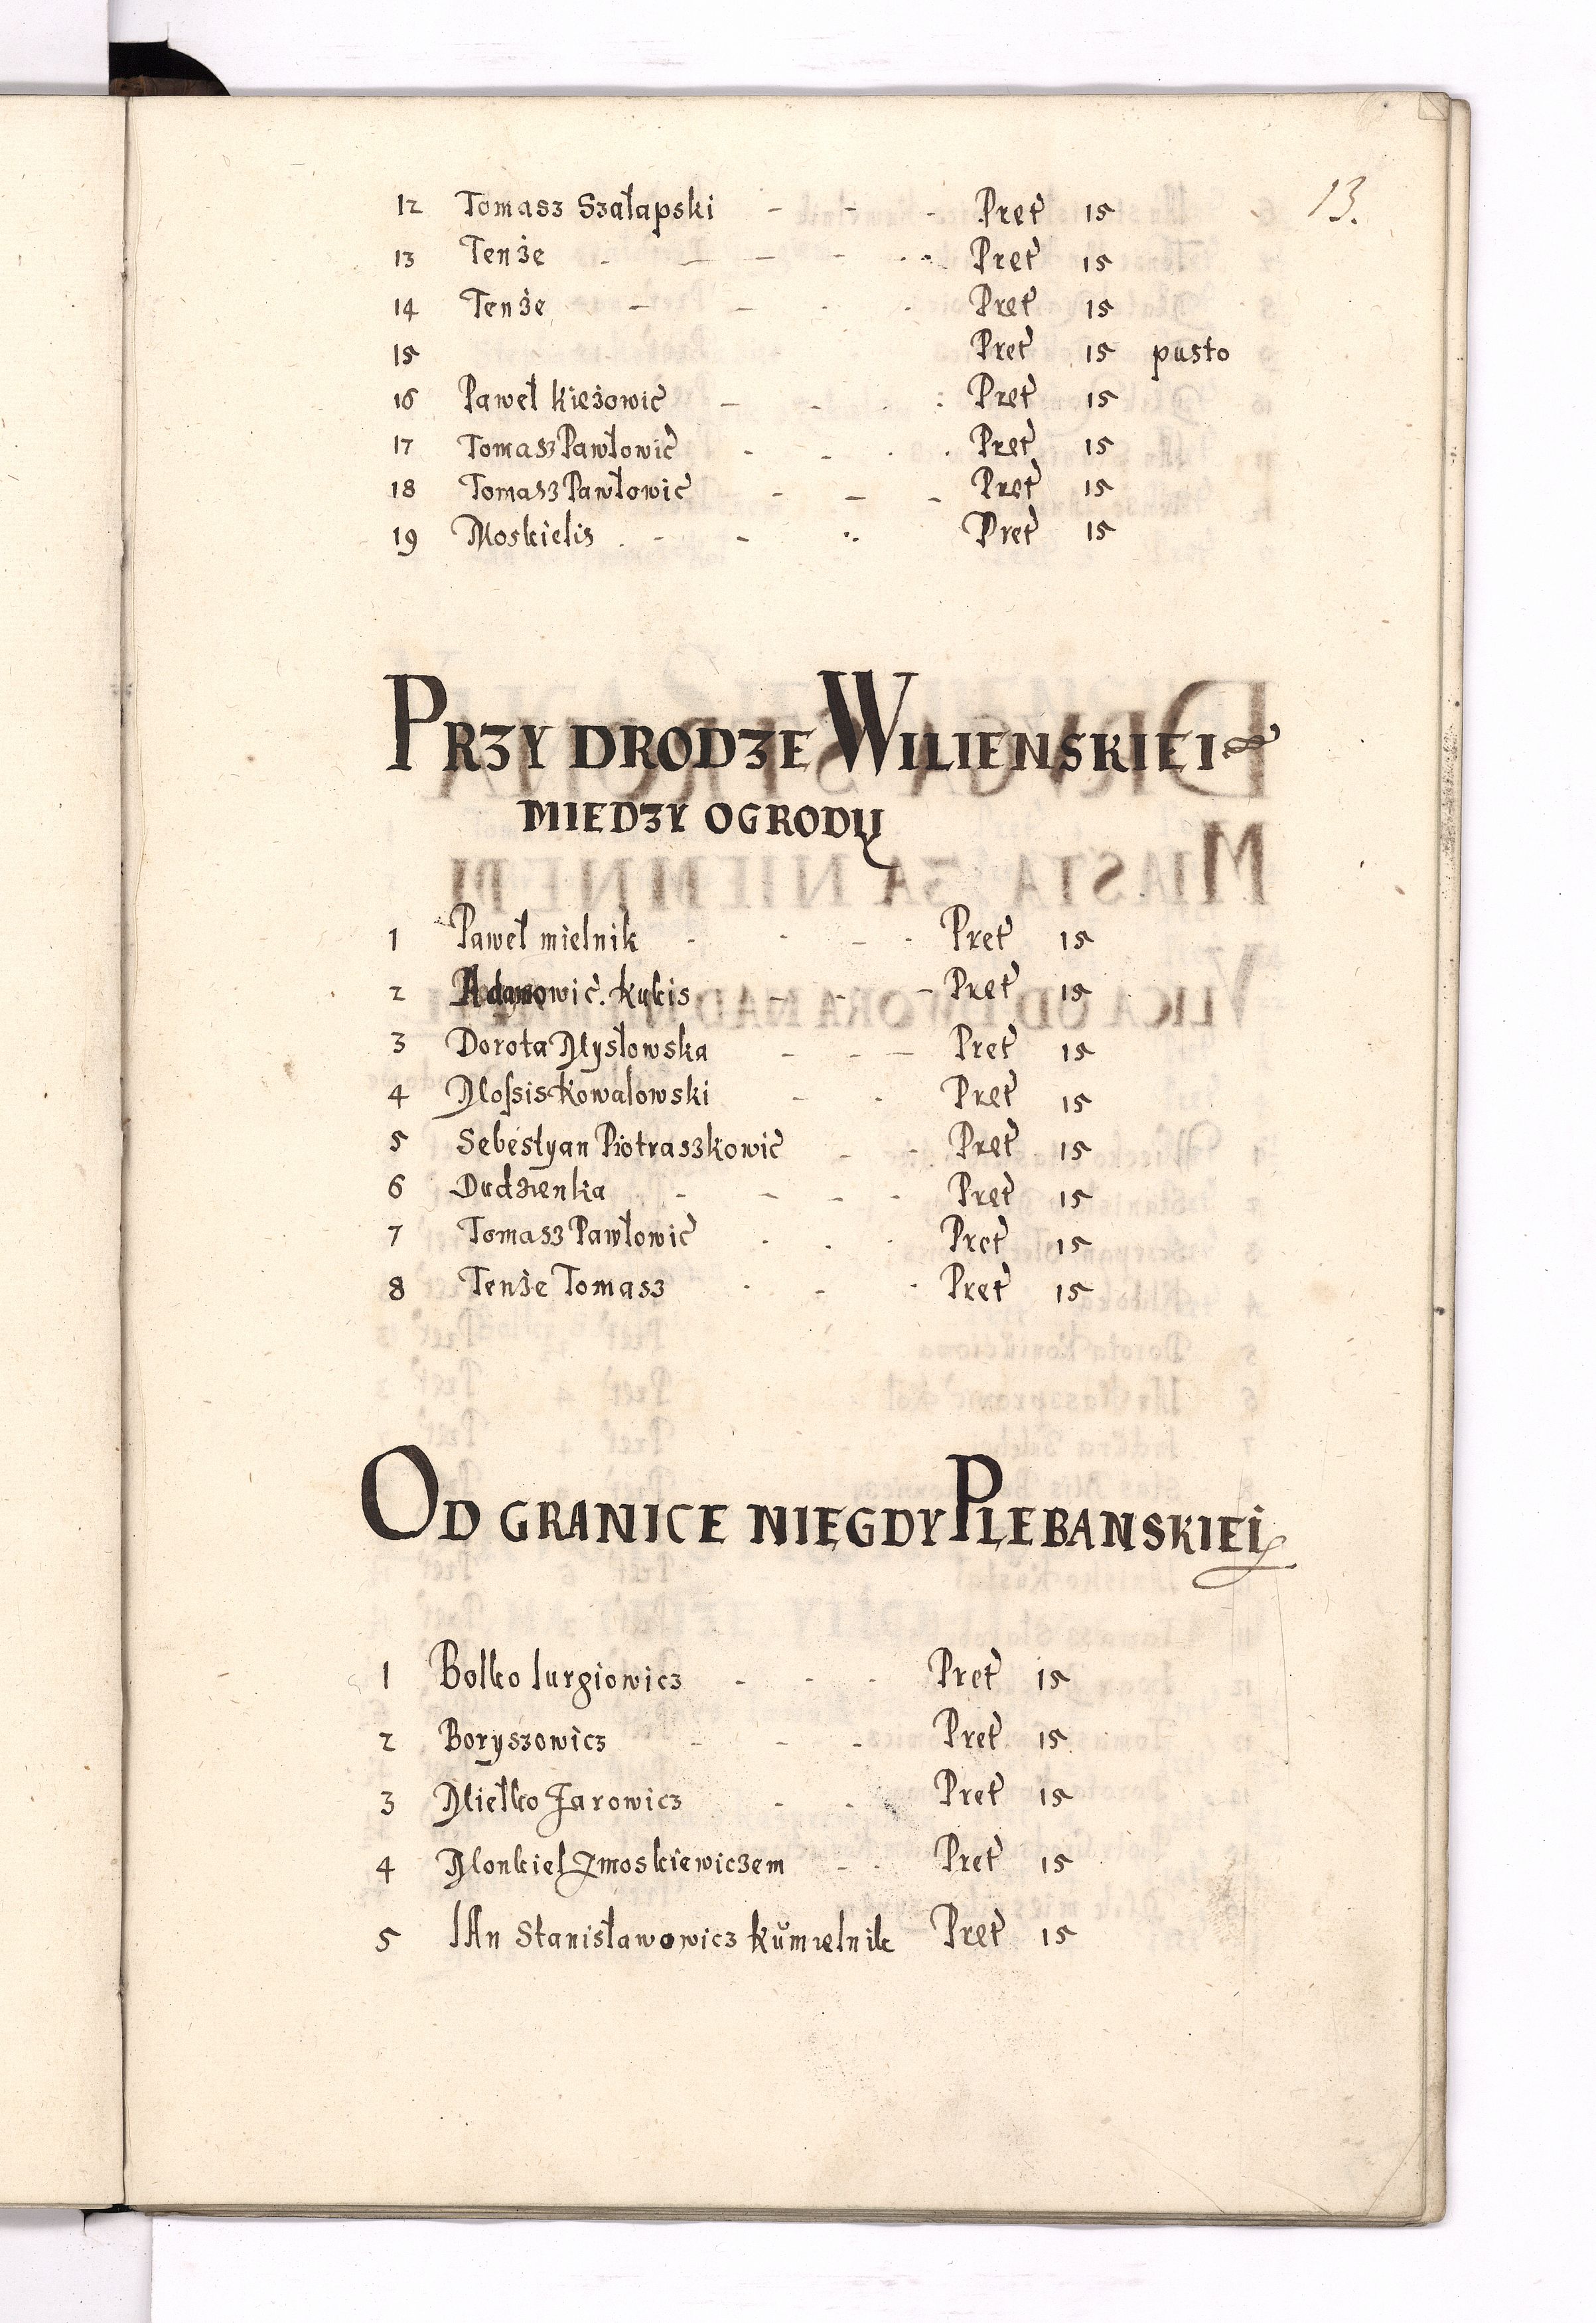 13.
12 Tomasz Szałapski - - - Pręt 15
13 Tenże - - - - Pręt 15
14 Tenże - - - - Pręt 15
15 Pręt 15 pusto
16 Paweł Kieżowic - - - Pręt 15
17 Tomasz Pawłowic - - - Pręt 15
18 Tomasz Pawłowic - - - Pręt 15
19 Moskielis - - - Pręt 15
PRZY DRODZE WILIENSKIEI
MIEDZY OGRODY
1 Paweł mielnik - - - - Pręt 15
2 Kukis - - - Pręt 15
3 Dorota Mysłowska - - - Pręt 15
4 Mossis Kowalowski - - Pręt 15
5 Sebestyan Piotraszkowic - - Pręt 15
6 Dudzienka - - - - Pręt 15
7 Tomasz Pawłowic - - - Pręt 15
8 Tenże Tomasz - - - Pręt 15
OD GRANICE NIEGDY PLEBANSKIEI
1 Bolko Iurgiowicz - - - Pręt 15
2 Boryszowicz - - - Pręt 15
3 Miełko Jarowicz - - Pręt 15
4 Monkiel Zmoskiewiczem - - Pręt 15
5 IAn Stanisławowicz Kumielnik Pręt 15